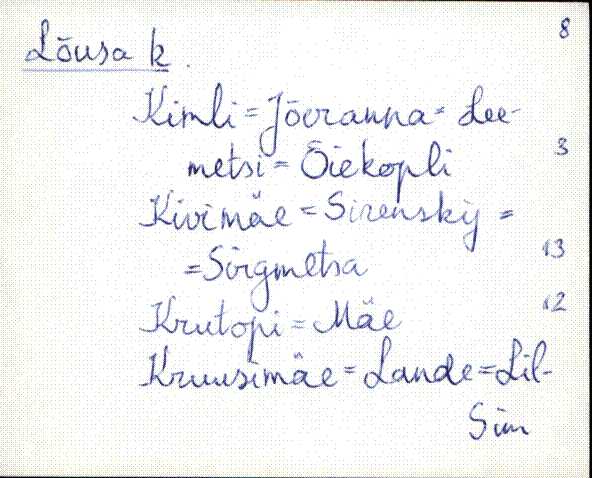 8
Lõusa k.
Kimli = Jõeranna = Lee-
metsi = Õiekopli 3
Kivimäe = Sirenskij =
= Sõrgmetsa 13
Krutopi = Mäe 12
Kruusimäe = Lande = Lil-
Sim